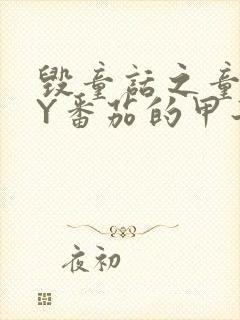 毁童话之童
Y番茄的甲
夜初